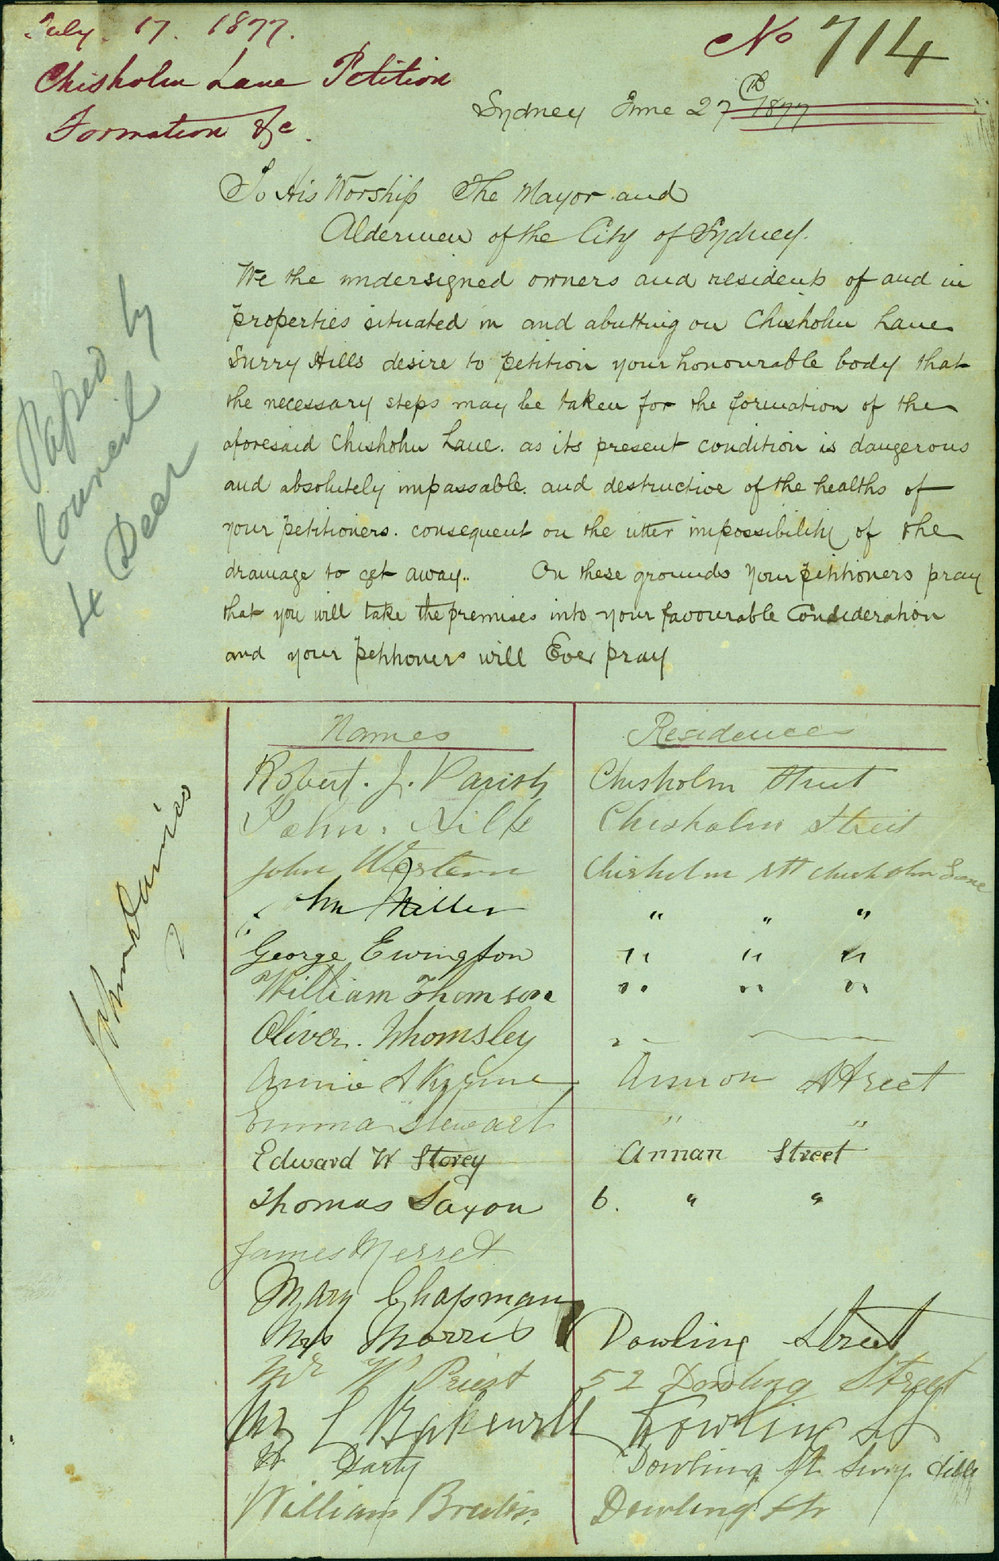 July. 17. 1877.
No 714
Chisholm Lane Petition
Formation &c.
Sydney June 27th 1877
To His Worship The Mayor and
Aldermen of the City of Sydney.
We the undersigned owners and residents of and in
properties situated in and abutting on Chisholm Lane
Surry Hills desire to petition your honourable body that
the necessary steps may be taken for the formation of the
aforesaid Chisholm Lane. as its present condition is dangerous
and absolutely impassable. and destructive of the healths of
your petitioners. consequent on the utter impossibility of the
drainage to get away.. On these grounds your petitioners pray
that you will take the premises into your favourable Consideration
and your petitioners will Ever pray
Passed by
Council
4 Decr
Names Residence
Robert. J. Parish Chisholm Street
John. Hills Chisholm Street
John Western Chisholm Stt Chisholm Lane
Miller " " "
George Ewington " " "
William Thomson " " "
Oliver. Whomsley "
Annie Annon Street
Emma Stewart " "
Edward W Storey Annan Street
Thomas Saxon 6. " "
James Merret
Mary Chapman
Mrs Morris Dowling Street
Mr W Priest 52 Dowling Street
Mr L Bakewell Dowling St
Darty Dowling St Surry Hills
William Dowling Str
John Davies